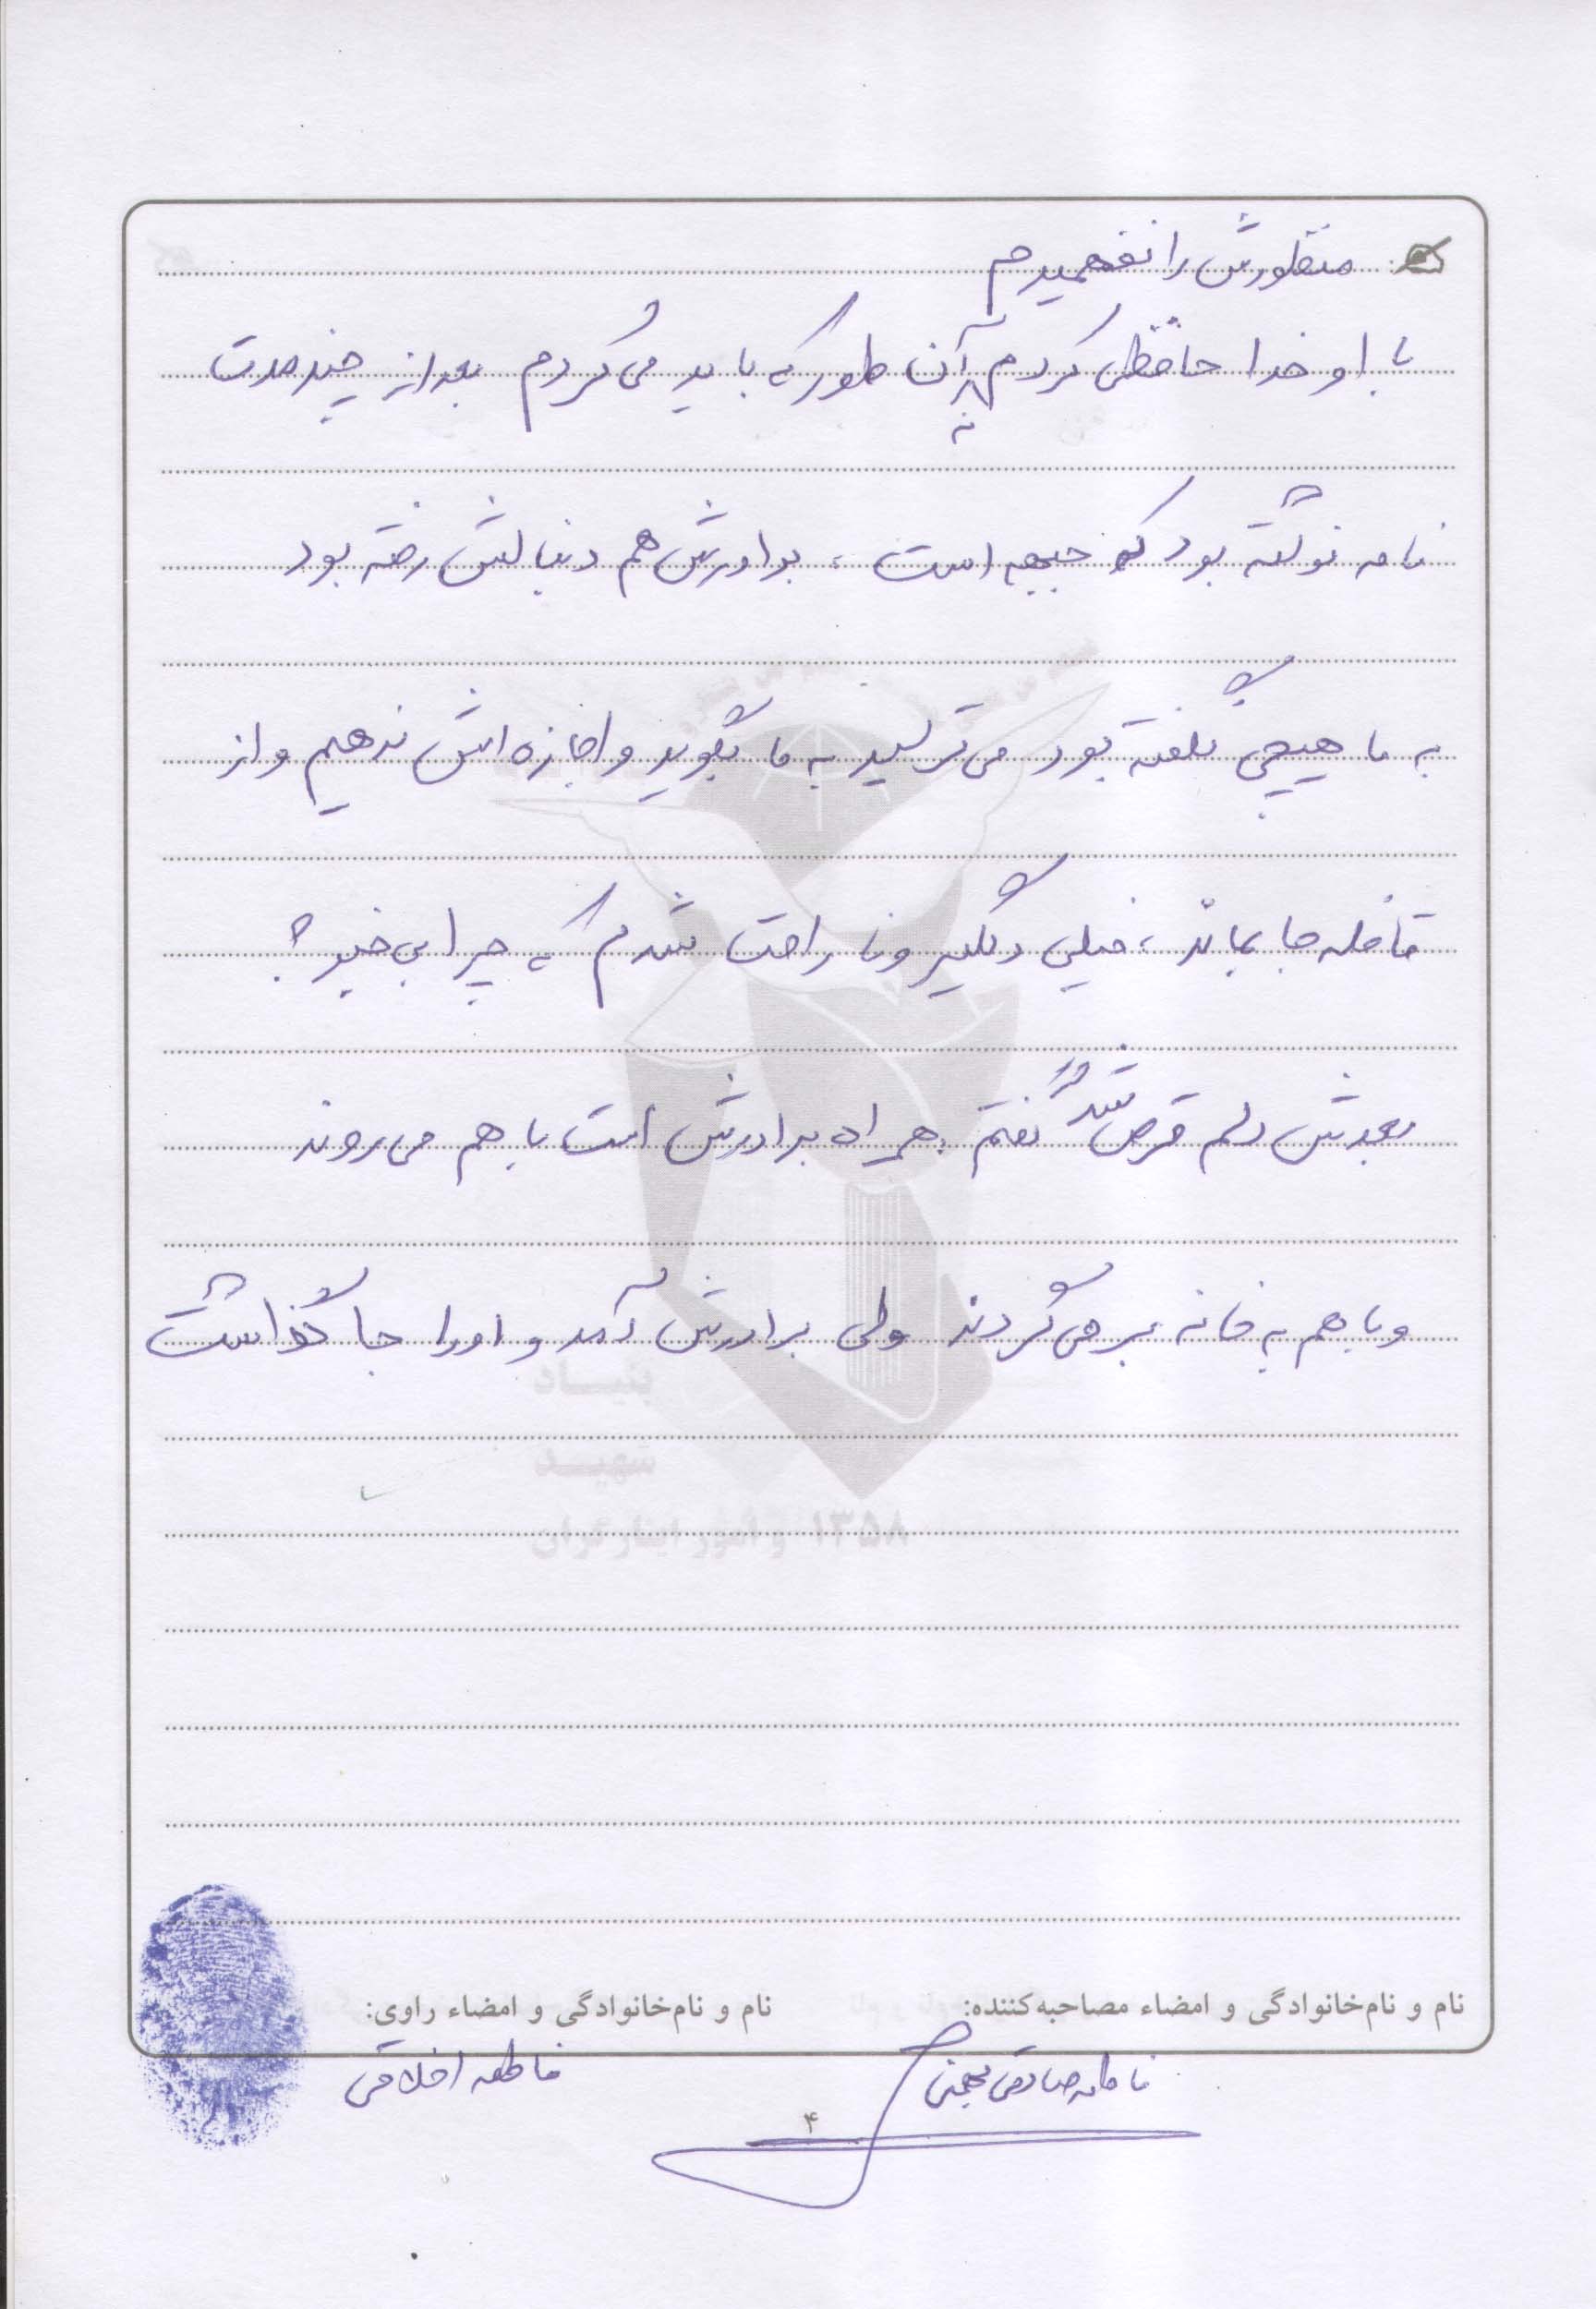 منظورش را نفهمیدم
با او خدا حافظی کردم نه آن طور که باید می کردم بعد از چند مدت
نامه نوشته بود که جبهه است، برادرش هم دنبالش رفته بود
به ما هیچی نگفته بود می ترسید به ما بگوید و اجازه اش ندهیم و از
قافله جا بماند، خیلی دلگیر و ناراحت شدم که چرا بی خبر؟
بعدش دلم قرص شد گفتم: همراه برادرش است با هم می روند
و با هم به خانه بر می گردند ولی برادرش آمد و او را جا گذاشت
بنیاد
شهید
و امور ایثارگران ۱۳۵۸
نام و نام‌خانوادگی و امضاء مصاحبه‌کننده:
نام و نام‌خانوادگی و امضاء راوی:
فاطمه صادقی
فاطمه اخلاقی
۴